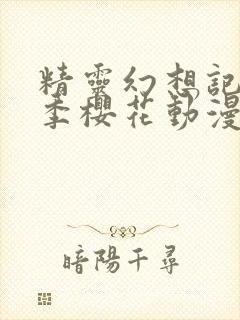 精靈幻想記
季櫻花動漫
暗陽千尋